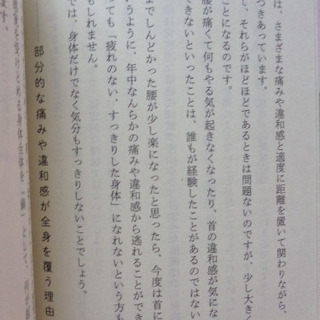 は、さまざまな痛みや違和感と適度に距離を置いて関わりながら、
つきあっています。
し、それらがほどほどであるときは問題ないのですが、少し大き
ことになるのです。
腰が痛くて何もやる気が起きなくなったり、首の違和感が気にな
できないといったことは、誰もが経験したことがあるのではない
でしんどかった腰が少し楽になったと思ったら、今度は首に
うように、年中なんらかの痛みや違和感から逃れることができ
っても「疲れのない、すっきりした身体」になれないという方も
もしれません。
では、身体だけでなく気分もすっきりしないことでしょう。
部分的な痛みや違和感が全身を覆う理由